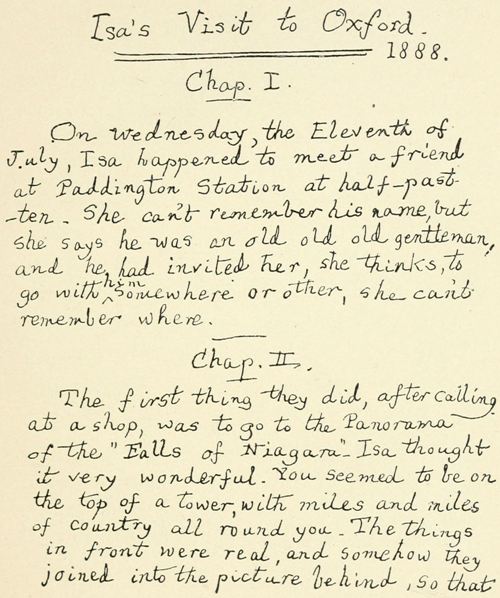 Isa's Visit to Oxford.
1888.
Chap. I.
On Wednesday, the Eleventh of
July, Isa happened to meet a friend
at Paddington Station at half-past-
-ten. She can't remember his name, but
she says he was an old old old gentleman,
and he had invited her, she thinks, to
go with him somewhere or other, she can't
remember where.
Chap. II.
The first thing they did, after calling
at a shop, was to go to the Panorama
of the "Falls of Niagara". Isa thought
it very wonderful. You seemed to be on
the top of a tower, with miles and miles
of country all round you. The things
in front were real, and somehow they
joined into the picture behind, so that